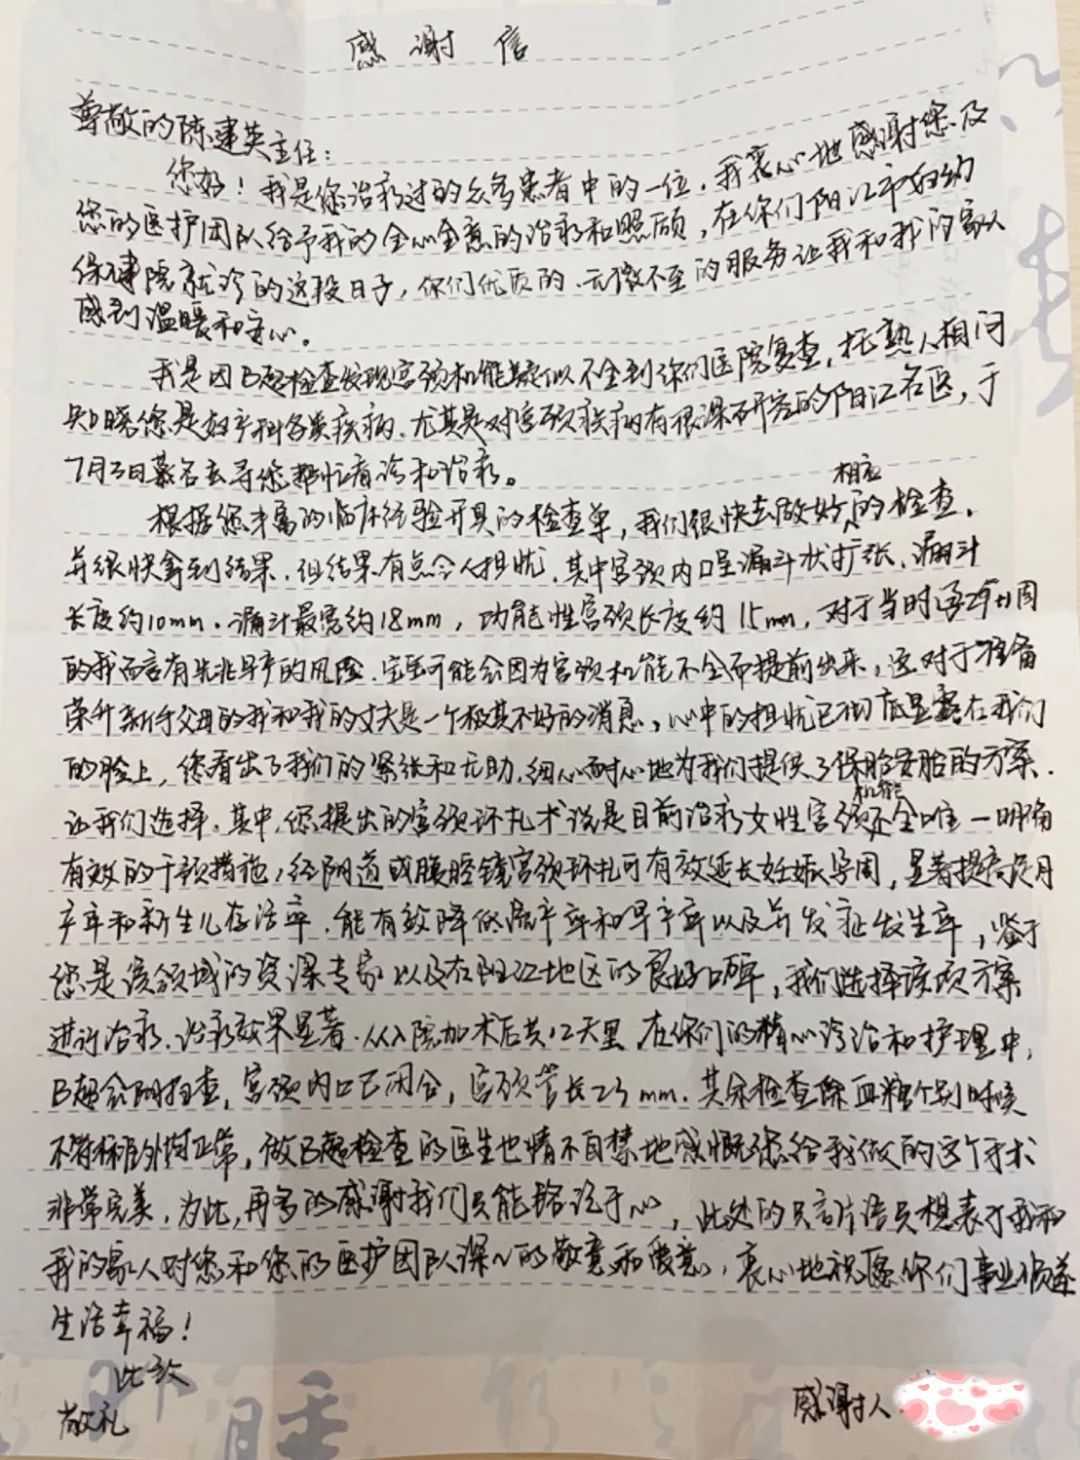 感谢信
尊敬的陈建英主任：
您好！我是您治疗过的众多患者中的一位，我衷心地感谢您及
您的医护团队给予我的全心全意的治疗和照顾，在你们阳江市妇幼
保健院就诊的这段日子，你们优质的、无微不至的服务让我和我的家人
感到温暖和安心。
我是因B超检查发现宫颈机能疑似不全到你们医院复查，托熟人相问
知晓您是妇产科各类疾病、尤其是对宫颈疾病有很深研究的阳江名医，于
7月3日慕名去寻您帮忙看诊和治疗。
根据您丰富的临床经验开具的检查单，我们很快去做好相应的检查，
并很快拿到结果，但结果有点令人担忧，其中宫颈内口呈漏斗状扩张，漏斗
长度约10mm，漏斗最宽约18mm，功能性宫颈长度约15mm，对于当时孕周
的我而言有先兆早产的风险，宝宝可能会因为宫颈机能不全而提前出来，这对于准备
荣升新手父母的我和我的丈夫是一个极其不好的消息，心中的担忧已彻底显露在我们
的脸上，您看出了我们的紧张和无助，细心耐心地为我们提供了保胎安胎的方案，
让我们选择，其中，您提出的宫颈环扎术说是目前治疗女性宫颈机能不全唯一明确
有效的干预措施，经阴道或腹腔镜宫颈环扎可有效延长妊娠孕周，显著提高足月
产率和新生儿存活率，能有效降低流产率和早产率以及并发症发生率，鉴于
您是该领域的资深专家以及在阳江地区的良好口碑，我们选择该项方案
进行治疗，治疗效果显著，从入院加术后共12天里，在你们的精心诊治和护理中，
B超会阴扫查，宫颈内口已闭合，宫颈管长23mm，其余检查除血糖个别时候
不符标准外均正常，做B超检查的医生也情不自禁地感慨您给我做的这个手术
非常完美，为此，再多的感谢我们只能铭记于心，此处的只言片语只想表示我和
我的家人对您和您的医护团队深深的敬意和爱意，衷心地祝愿你们事业顺遂
生活幸福！
此致
敬礼
感谢人